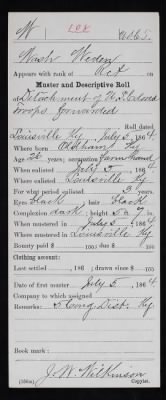 W
U.S.C.T.
Wash Weden
Appears with rank of Rct on
Muster and Descriptive Roll
of Detachment of U. S. Colored
Troops forwarded
Roll dated
Louisville Ky July 5, 1864.
Where born Oldham Ky
Age 26 years; occupation Farm hand
When enlisted July 5, 1864
Where enlisted Louisville Ky
For what period enlisted 3 years.
Eyes black; hair black
Complexion dark; height 5 ft. 9 in.
When mustered in July 5, 1864.
Where mustered in Louisville Ky
Bounty paid $ 100; due $ 100
Clothing account:
Last settled , 186 ; drawn since $ 100
Date of first muster July 5, 1864.
Company to which assigned
Remarks: 5 Cong. Dist. Ky
Book mark:
J. W. Wilkinson
Copyist.